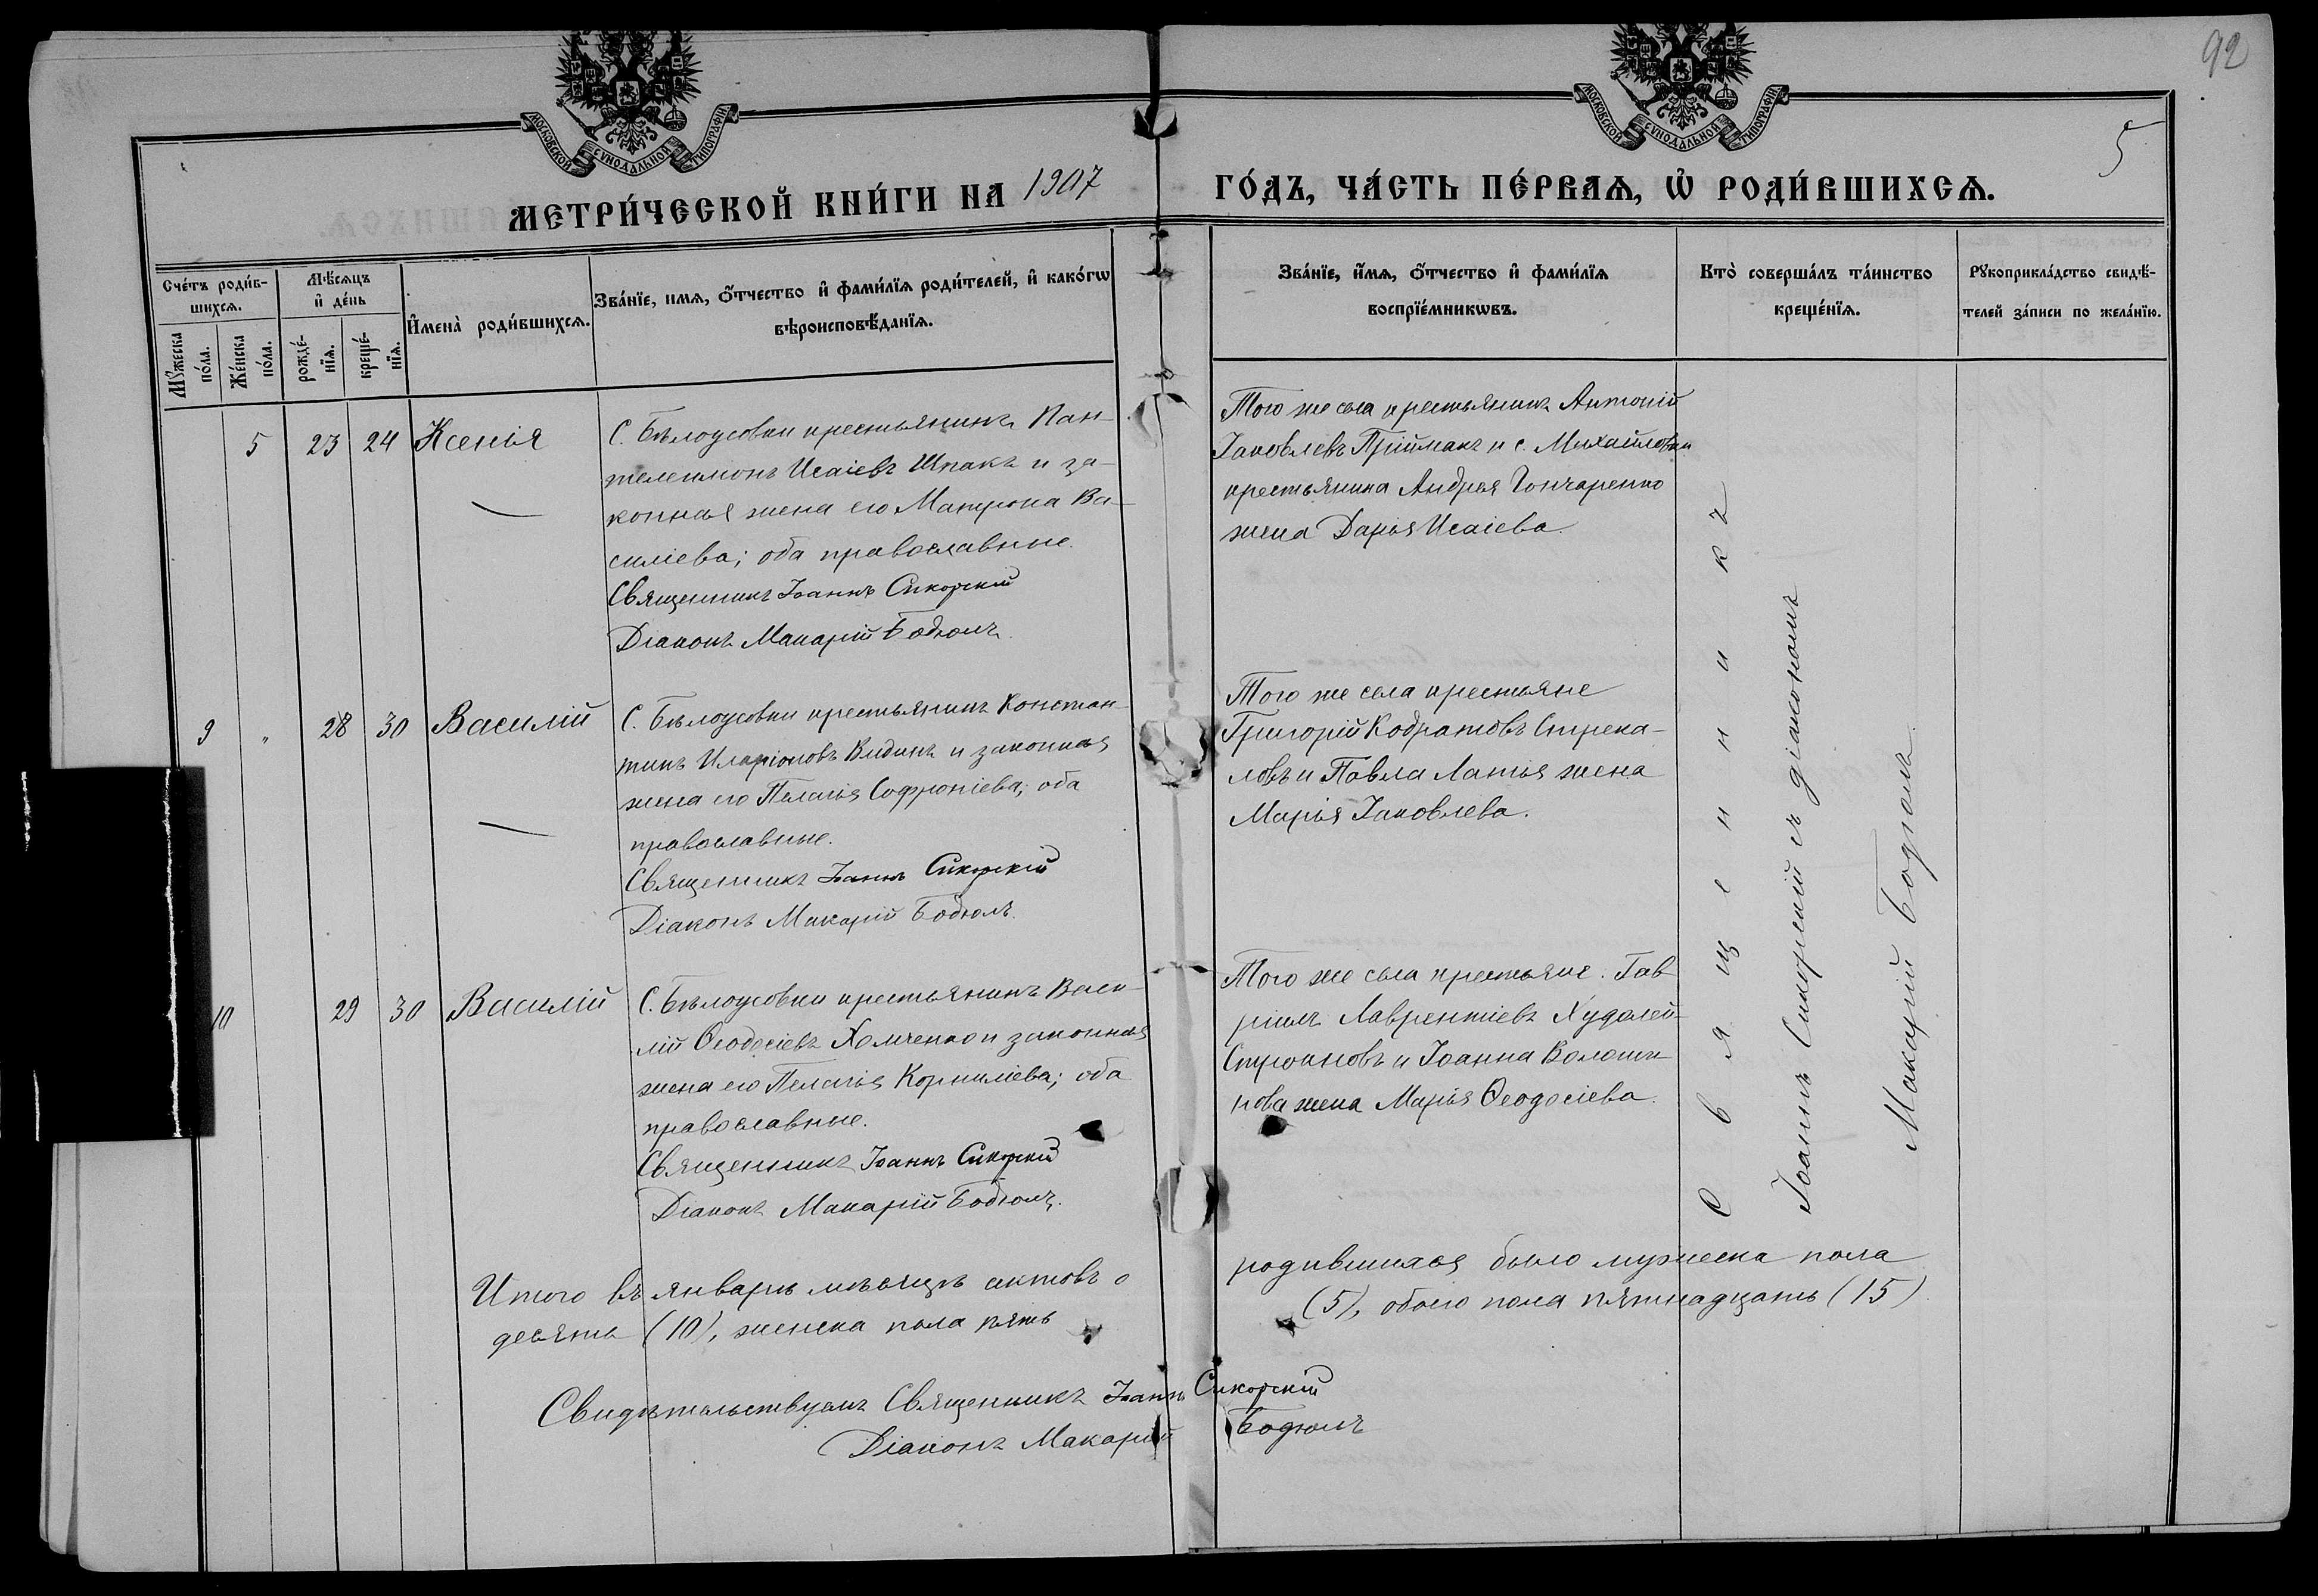 92
5
МОСКОВСКОЙ СѴНОДАЛЬНОЙ ТИПОГРАФІИ
МОСКОВСКОЙ СѴНОДАЛЬНОЙ ТИПОГРАФІИ
МЕТРИ́ЧЕСКОЙ КНИ́ГИ НА 1907
ГО́ДЪ, ЧА́СТЬ ПЕ́РВАѦ, Ѡ҆ РОДИ́ВШИХСѦ.
Сче́тъ роди́в-
шихсѧ.
Мꙋ́жеска
по́ла.
Же́нска
по́ла.
Мѣ́сѧцъ
и҆ де́нь
рожде́-
нїѧ.
креще́-
нїѧ.
И҆мена̀ роди́вшихсѧ.
Зва́нїе, имѧ, ѻ҆́тчество и҆ фами́лїѧ роди́телей, и҆ како́гѡ
вѣроисповѣ́данїѧ.
Зва́нїе, и҆́мѧ, ѻ҆́тчество и҆ фами́лїѧ
воспрїе́мникѡвъ.
Кто̀ соверша́лъ та́инство
креще́нїѧ.
Рꙋкоприкла́дство свидѣ́-
телей за́писи по жела́нїю.
5 23 24 Ксенія
С. Бѣлоусовки крестьянинъ Пан-
телеимонъ Исаіевъ Шпакъ и за-
конная жена его Матрона Ва-
силіева; оба православные.
Священникъ Іоаннъ Сикорскій
Діаконъ Макарій Бодюлъ.
Того же села крестьянинъ Антоній
Іаковлевъ Пріймакъ и с. Михайловки
крестьянина Андрея Гончаренко
жена Дарья Исаіева.
9 " 28 30 Василій
С. Бѣлоусовки крестьянинъ Констан-
тинъ Иларіоновъ Видинъ и законная
жена его Пелагія Софроніева; оба
православные.
Священникъ Іоаннъ Сикорскій
Діаконъ Макарій Бодюлъ.
Того же села крестьяне
Григорій Кодратовъ Стрека-
ловъ и Павла Латія жена
Марія Іаковлева.
10 29 30 Василій
С. Бѣлоусовки крестьянинъ Васи-
лій Ѳеодосіевъ Хомченко и законная
жена его Пелагія Корниліева; оба
православные.
Священникъ Іоаннъ Сикорскій
Діаконъ Макарій Бодюлъ.
Того же села крестьяне. Гав-
ріилъ Лаврентіевъ Худолей-
и Іоанна Волоши-
нова жена Марія Ѳеодосіева.
Священникъ
Іоаннъ Сикорскій съ діакономъ
Макарій Бодюлъ.
Итого въ январѣ мѣсяцѣ актовъ о родившихся было мужеска пола
десять (10), женска пола пять (5), обоего пола пятнадцать (15)
Свидѣтельствуемъ Священникъ Іоаннъ Сикорскій
Діаконъ Макарій Бодюлъ